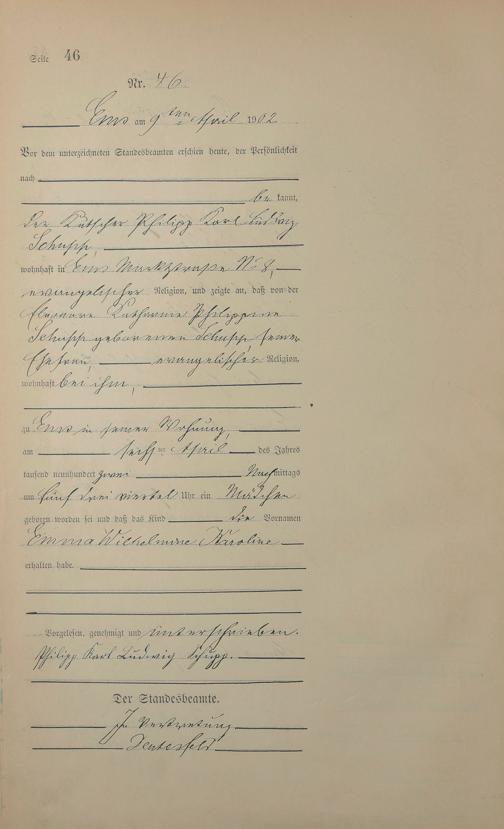 Seite 46
Nr. 46.
Ems am 9ten April 1902
Vor dem unterzeichneten Standesbeamten erschien heute, der Persönlichkeit
nach
be kannt,
der Kutscher Philipp Karl Ludwig
Schupp,
wohnhaft in Ems Marktstraße No 8,
evangelischer Religion, und zeigte an, daß von der
Eleonore Katharine Philippine
Schupp geborenen Schupp seiner
Ehefrau, evangelischer Religion,
wohnhaft bei ihm,
zu Ems in seiner Wohnung,
am sechsten April des Jahres
tausend neunhundert zwei Nachmittags
um fünf dreiviertel Uhr ein Mädchen
geboren worden sei und daß das Kind die Vornamen
Emma Wilhelmine Karoline
erhalten habe.
Vorgelesen, genehmigt und unterschrieben.
Philipp Karl Ludwig Schupp.
Der Standesbeamte.
In Vertretung